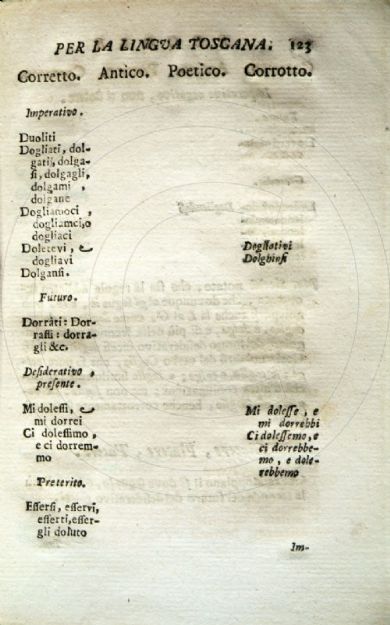 PER LA LINGVA TOSCANA. 123
Corretto. Antico. Poetico. Corrotto.
Imperativo.
Duoliti
Dogliati, dol-
gati, dolga-
si, dolgagli,
dolgami ,
dolgane
Dogliamoci ,
dogliamcio
dogliaci
Doletevi , e
dogliavi
Dogliativi
Dolghinsi
Dolgansi.
Futuro.
Dorrati: Dor-
rassi: dorra-
gli &c.
Desiderativo ,
presente.
Mi dolessi, e
mi dorrei
Ci dolessimo ,
e ci dorrem-
mo
Mi dolesse , e
mi dorrebbi
Ci dolessemo, e
ci dorrebbe-
mo , e dole-
rebbemo
Preterito.
Essersi, esservi,
esserti, esser-
gli doluto
Im-